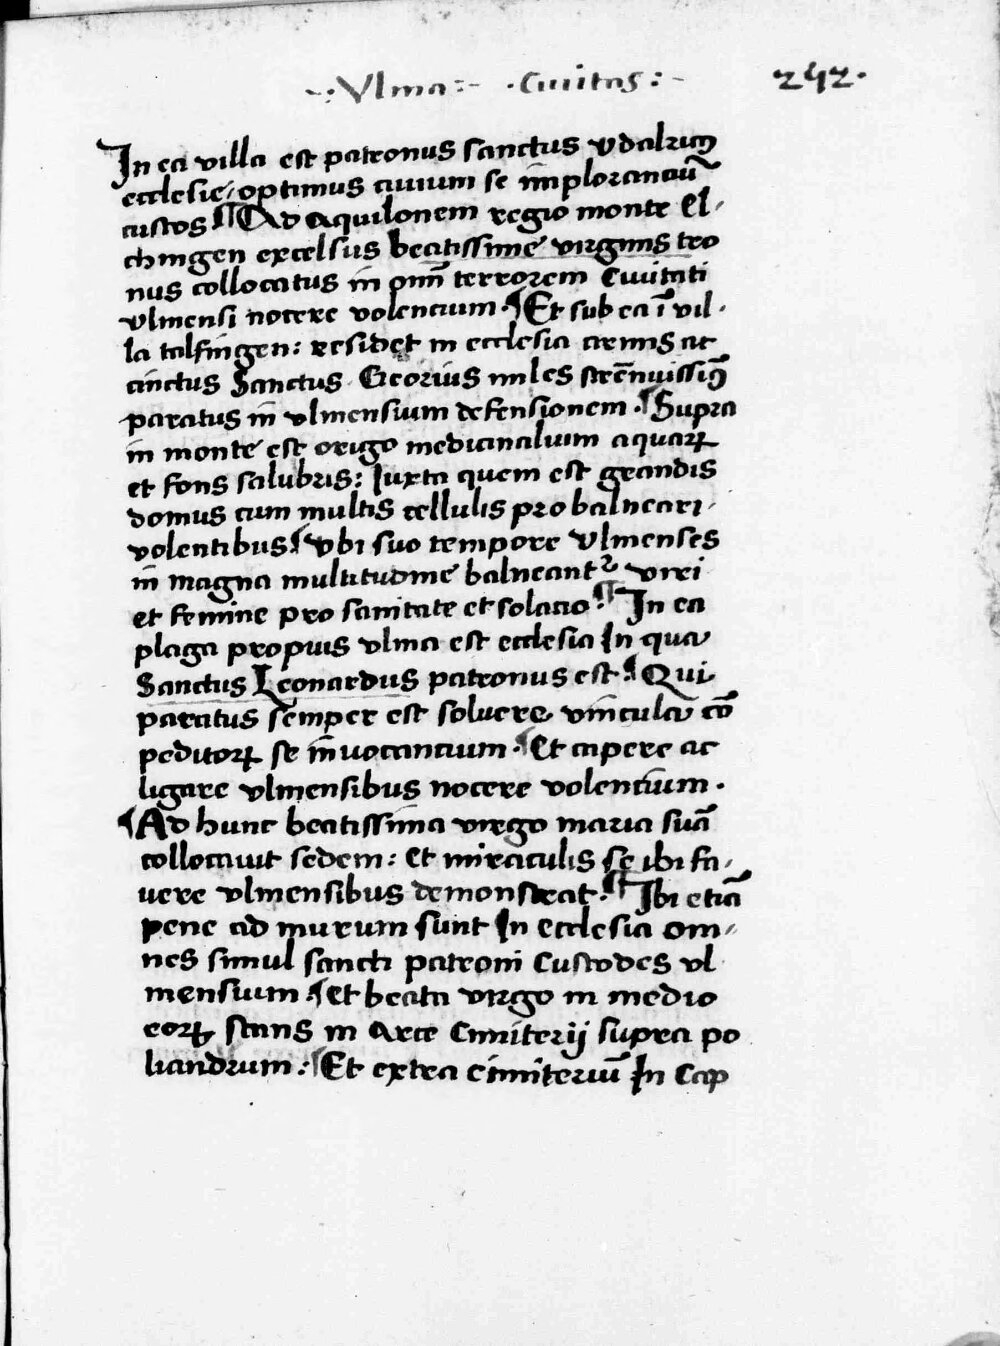 ·:Vlma:- ·Ciuitas:- 242.
In ea villa est patronus sanctus vdalricꝰ
ecclesie, optimus ciuium se imploranciū
custos ¶ Ad Aquilonem regio monte El-
chingen excelsus beatissime virginis tro
nus collocatus in omnē terrorem Ciuitati
vlmensi nocere volencium. ¶ Et sub ea ī vil-
la talfingen: residet in ecclesia armis ac
cinctus Sanctus Georius miles strēnuissimꝰ
paratus in vlmensium defensionem. ¶ Supra
in monte est origo medicinalium aquarꝝ
et fons salubris: Iuxta quem est grandis
domus cum multis cellulis pro balneari-
volentibus ¶ vbi suo tempore Vlmenses
in magna multitudine balneantᷣ viri
et femine pro sanitate et solacio. ¶ In ea
plaga propius vlma est ecclesia In qua
Sanctus Leonardus patronus est ¶ Qui
paratus semper est soluere vincula cō
peditorꝝ se inuocancium. ¶ Et capere ac
ligare vlmensibus nocere volencium.
¶ Ad hunc beatissima virgo maria suā
collocauit sedem: et miraculis se ibi fa-
uere vlmensibus demonstrat. ¶ Ibi etiā
pene ad murum sunt In Ecclesia om-
nes simul sancti patroni Custodes vl
mensium. ¶ et beata virgo in medio
eorꝝ stans in Arce Cimiterij supra po
liandrum: ¶ Et extra cimiteriū In Cap